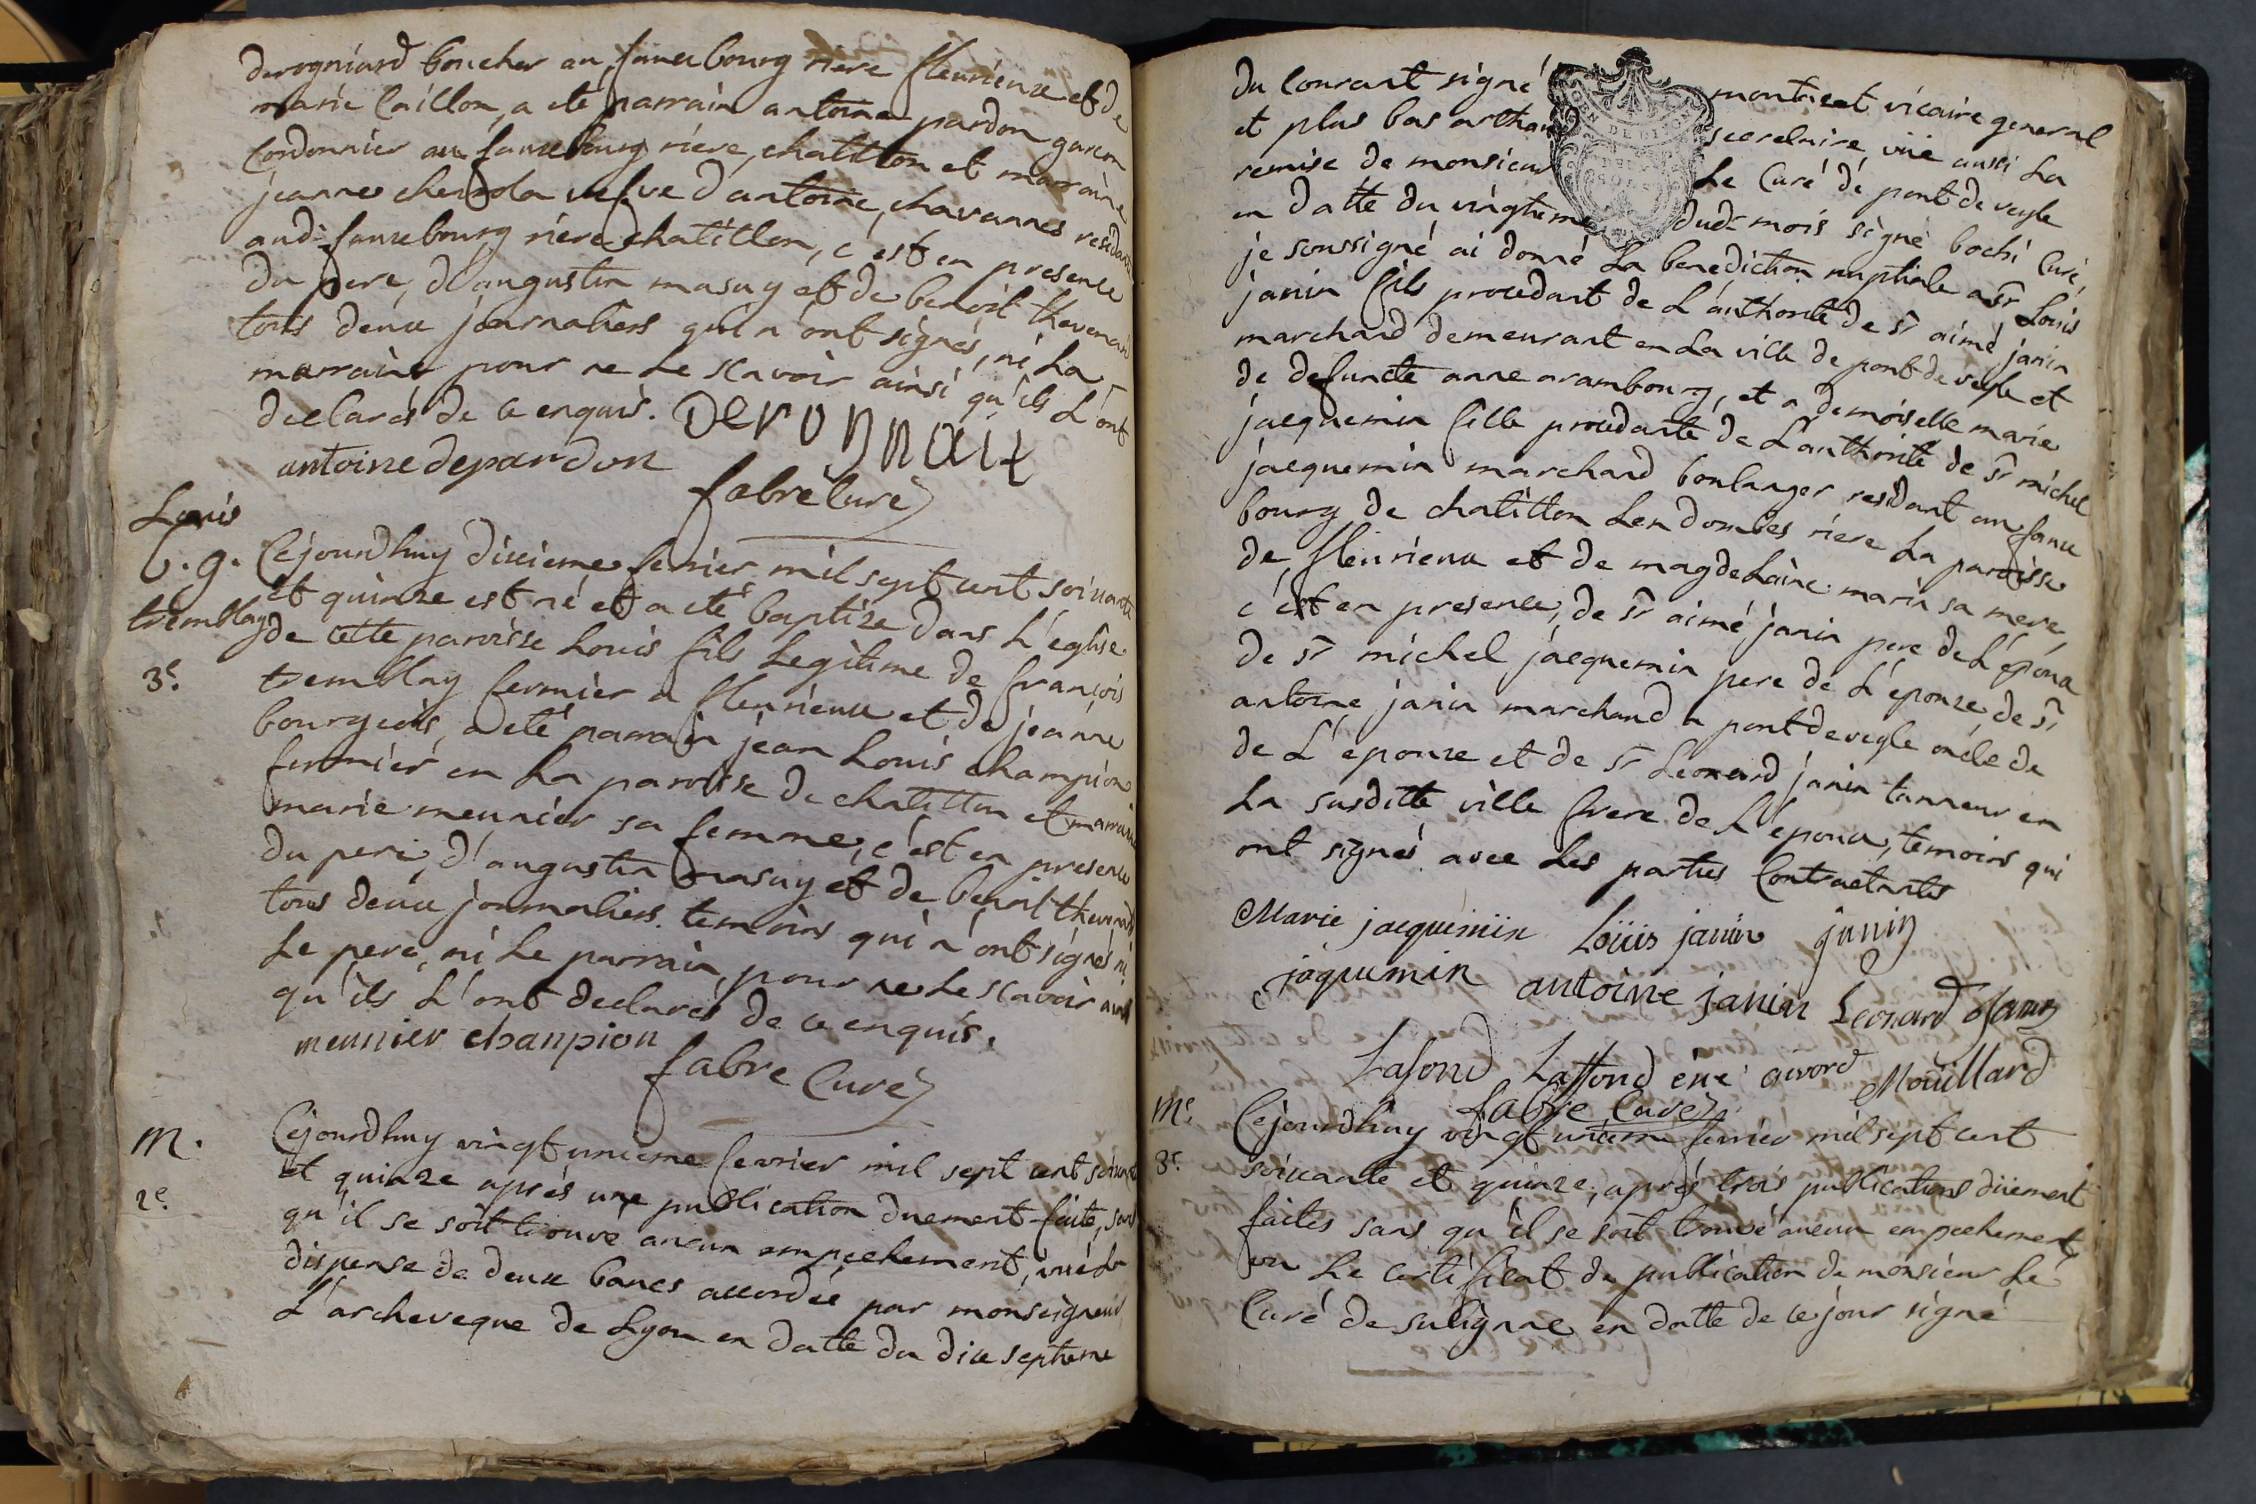 derogniard boucher au fauxbourg riere fleurieux et de
marie Caillon, a eté parrain antoine pardon garcon
Cordonnier au fauxbourg riere chatillon et marraine
jeanne velve d'antoine chavannes residante
aud. fauxbourg riere chatillon, c'est en presence
du pere, d'augustin masuy et de benoit thevenard
tous deux journaliers qui n'ont signés, ni La
marraine pour ne Le scavoir ainsi qu'ils L'ont
declarés de ce enquis. Deronnait
antoine depardon
fabre Curé
Louis
L. g.
tremblay
3e.
Cejourdhuy dixieme fevrier mil sept cent soixante
et quinze est né et a eté baptize dans L'eglise
de cette paroisse Louis fils Legitime de françois
tremblay fermier a fleurieux et de jeanne
bourgeois, a eté parrain jean Louis champion
fermier en La paroisse de chatillon et marraine
marie meunier sa femme, c'est en presence
du pere, d'augustin masuy et de benoit thevenard
tous deux journaliers temoins qui n'ont signés ni
Le pere, ni Le parrain, pour ne Le scavoir ainsi
qu'ils L'ont declarés de ce enquis.
meunier chanpion
fabre Curé
M.
2e.
Cejourdhuy vingt unieme fevrier mil sept cent soixante
et quinze après une publication duement faite, sans
qu'il se soit trouvé aucun empechement, vüe La
dispense de deux bancs accordée par monseigneur
L'archeveque de Lyon en datte du dix septieme
du Courant signé montreet vicaire general
et plus bas arthaud secretaire vüe aussi La
remise de monsieur Le Curé de pont de veyle
en datte du vingtieme dud. mois signé bochi Curé,
je soussigné ai donné La benediction nuptiale a sr Louis
janin fils procedant de L'authorité de sr aimé janin
marchand demeurant en La ville de pont de veyle et
de defuncte anne arambourg, et a demoiselle marie
jacquemin fille procedante de L'authorité de sr michel
jacquemin marchand boulanger residant au faux
bourg de chatillon Les dombes riere La paroisse
de fleurieux et de magdeLaine marin sa mere,
c'est en presence, de sr aimé janin pere de L'epoux
de sr michel jacquemin pere de L'epouze, de sr
antoine janin marchand a pont de veyle oncle de
de L'epouze et de sr Leonard janin tanneur en
La susditte ville frere de L'epoux, temoins qui
ont signés avec Les parties Contractantes
Marie jacquemin Loüis janin janin
jaquemin antoine janin Leonard Janin
Lafond Laffond Mouillard
fabre Curé
M.
3e.
Cejourdhuy vingt unieme fevrier mil sept cent
soixante et quinze, après trois publications düement
faites sans qu'il se soit trouvé aucun empechement
vu Le certificat de publication de monsieur Le
Curé de suligna en datte de ce jour signé